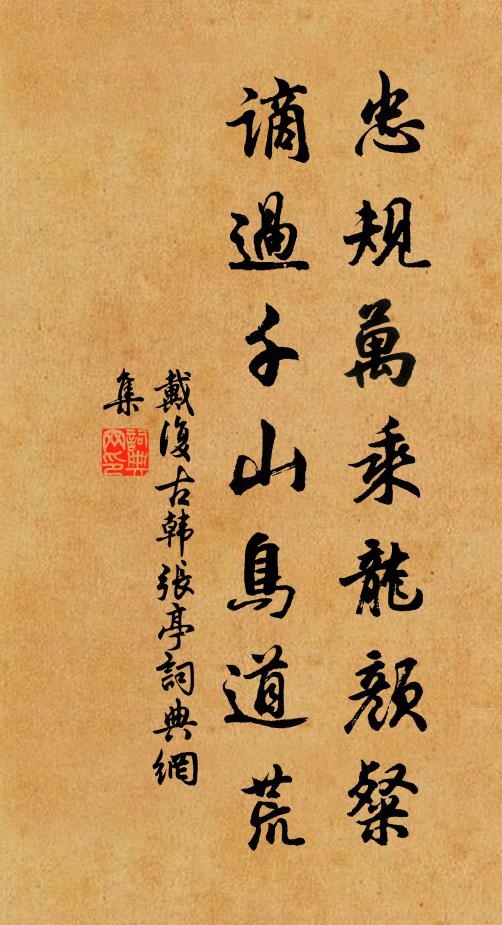 忠規萬乘龍顏粲
謫過千山鳥道荒
戴復古韩張亭詞典網
集
詞典網印